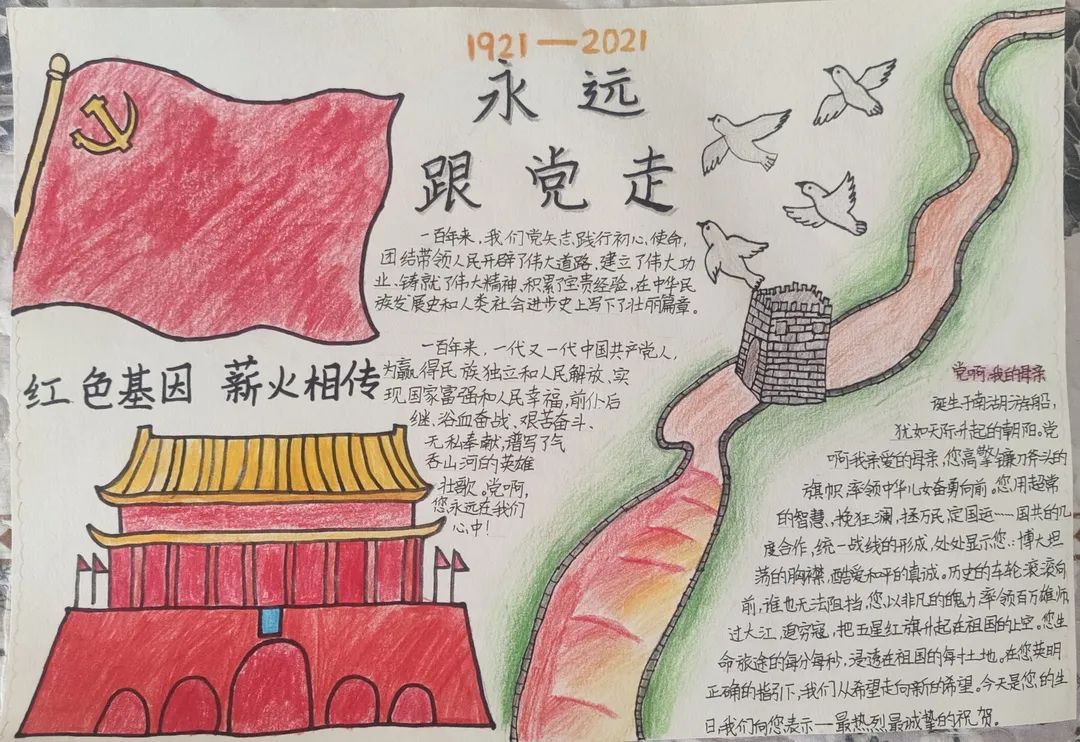 1921—2021
永远
跟党走
一百年来,我们党矢志践行初心、使命,
团结带领人民开辟了伟大道路、建立了伟大功
业、铸就了伟大精神、积累了宝贵经验,在中华民
族发展史和人类社会进步史上写下了壮丽篇章。
红色基因 薪火相传
一百年来,一代又一代中国共产党人,
为赢得民族独立和人民解放、实
现国家富强和人民幸福,前仆后
继、浴血奋战、艰苦奋斗、
无私奉献,谱写了气
吞山河的英雄
壮歌。党啊,
您永远在我们
心中!
党啊,我的母亲
诞生于南湖游船,
犹如天际升起的朝阳。党
啊!我亲爱的母亲,您高擎镰刀斧头的
旗帜,率领中华儿女奋勇向前。您用超常
的智慧、挽狂澜,拯万民,定国运……国共的几
度合作,统一战线的形成,处处显示您:博大坦
荡的胸襟,酷爱和平的真诚。历史的车轮滚滚向
前,谁也无法阻挡,您以非凡的魄力率领百万雄师
过大江,追穷寇,把五星红旗升起在祖国的上空。您生
命旅途的每分每秒,浸透在祖国的每寸土地。在您英明
正确的指引下,我们从希望走向新的希望。今天是您的生
日,我们向您表示——最热烈最诚挚的祝贺。